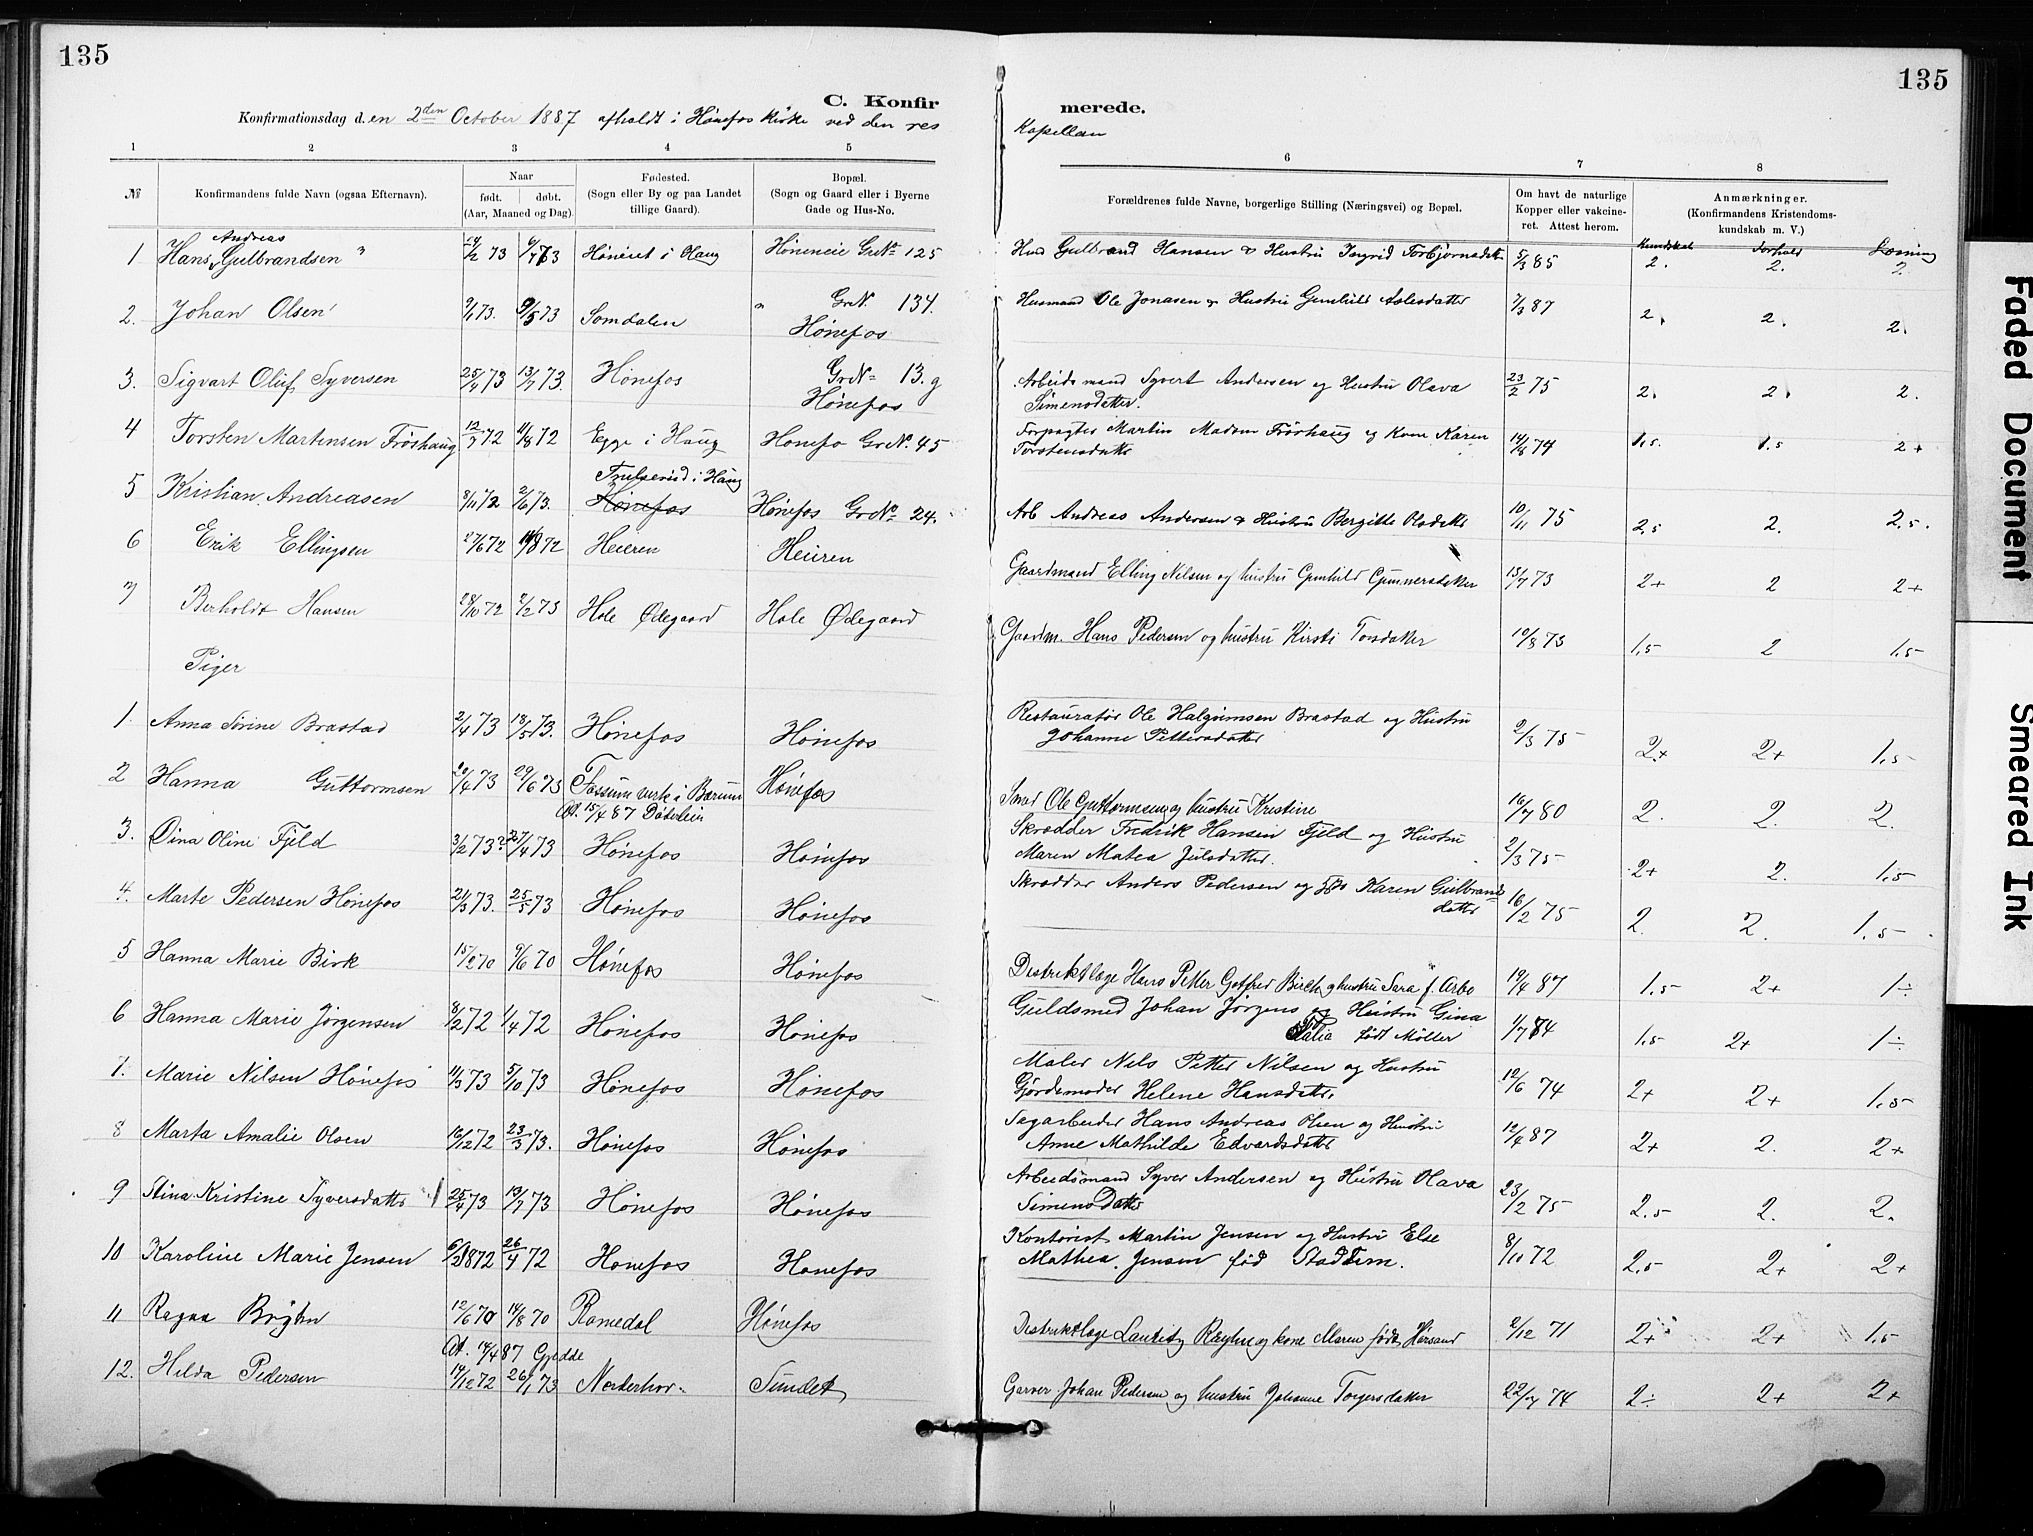 135
135
C. Konfir
merede.
Konfirmationsdag d.en 2den October 1887 afholdt i Hønefos Kirke ved den res
Kapellan
1 2 3 4 5 6 7 8
№ Konfirmandens fulde Navn (ogsaa Efternavn). Naar født. døbt. (Aar, Maaned og Dag). Fødested. (Sogn eller By og paa Landet tillige Gaard). Bopæl. (Sogn og Gaard eller i Byerne Gade og Hus-No. Forældrenes fulde Navne, borgerlige Stilling (Næringsvei) og Bopæl. Om havt de naturlige Kopper eller vakcineret. Attest herom. Anmærkninger. (Konfirmandens Kristendomskundskab m. V.)
Kundskab Forhold Læsning
Andreas
1 Hans Gulbrandsen " 73 Høneneie GrN. 125 Gulbrand Hansen & Hustru Ingrid Torbjørnsdatt 5/3 85 2. 2. 2.
2. Johan Olsen 9/1 73. 9/5 73 Somdalen " GrN. 134. Hønefos Husmand Ole Jonasen & Hustru Gunhild Aslesdatter 7/3 87 2. 2. 2.
3. Sigvart Oluf Syversen 25/4 73 13/7 73. Hønefos GrN. 13.g Hønefos Arbeidsmand Syvert Andersen og Hustru Olava
Simensdatter. 23/2 75 2. 2. 2.
4 Torsten Martinsen Frøshaug 12/7 72 11/8 72 Egge i Haug Honefo GrN. 45 Forpagter Martin Madsen Frøshaug og Kone Karen
Torstensdatter 14/8 74 1.5. 1.5 2+
Trulserud i Haug
5 Kristian Andreasen 8/11 72 2/6 73. Hønefos Hønefos GrN. 24. Arb Andreas Andersen & Hustru Bergitte Olsdatt 10/11 75 2.5 2. 2.5.
6 Erik Ellingsen 27/6 72 11/8 72 Heieren Heieren Gaardmand Elling Nilsen og hustru Gunhild Gunnersdatter 13/7 73 2+ 2 2+
7 Berholdt Hansen 28/10 72 2/2 73 Hole Ødegaard Hole Ødegaard Gaardm. Hans Pedersen og hustru Kirsti Torsdatter 10/8 73 1,5 2 1.5
Piger
1. Anna Sørine Brastad 2/4 73 18/5 73. Hønefos Hønefos Restauratør Ole Halgrimsen Brastad og Hustru
Johanne Pettersdatter 2/3 75 2+ 2+ 1.5
2 Hanna Guttormsen 20/4 73 29/6 73 Fossum verk i Bærum Hønefos Smed Ole Guttormsen og hustru Kristine 16/7 80 2. 2. 2.
At. 15/4 87 Døderlein
3. Dina Oline Fjeld 3/2 73 27/4 73 Hønefos Hønefos Skrædder Fredrik Hansen Fjeld og Hustru
Maren Matea Julsdatter. 2/3 75 2+ 2. 1.5
4. Marte Pedersen Hønefos 21/3 73. 25/5 73 Hønefos Hønefos Skrædder Anders Pedersen og Karen Gulbrands
datter 16/2 75 2. 2. 1.5
5 Hanna Marie Birk 15/2 70 9/6 70 Hønefos Hønefos Distriktlæge Hans Petter Gotfred Birch og hustru Sara f. Arbo 19/4 87 1.5 2+ 1÷
6 Hanna Marie Jørgensen 8/2 72 1/4 72 Hønefos Hønefos Guldsmed Johan Jørgens og Hustru Gina
Talia født Møller 1/7 84 1.5 2+ 1÷
7. Marie Nilsen Hønefos 11/3 73 5/10 73 Hønefos Hønefos Maler Nels Petter Nilsen og Hustru
Gjordemoder Helene Hansdatter. 12/6 74 2+ 2+ 1.5
8 Marta Amalie Olsen 16/12 72 23/3 73. Hønefos Hønefos Sagarbeider Hans Andreas Olsen og Hustru
Anne Mathilde Edvardsdatter 12/4 87 2+ 2. 2+
9 Stina Kristine Syversdatter 25/4 73 13/7 73 Hønefos Hønefos Arbeidsmand Syver Andersen og Hustru Olava
Simens Datter 23/2 75 2.5 2. 2.
10 Karoline Marie Jensen 6/2 1872 26/4 72 Honefos Honefos Kontorist Martin Jensen og Hustru Else
Mathea. Jensen fød Stadsem. 8/11 72 2.5 2+ 2+
11 Ragna 12/6 70 14/8 70 Romedal Hønefos Distriktlæge og kone Maren født 2/12 71 2+ 2+ 1.5
At. 14/4 87 Gjedde
12. Hilda Pedersen 14/12 72 26/1 73 Norderhov Sundet Garver Johan Pedersen og hustru Johanne Torgersdatter 22/7 74 2÷ 2+ 2+
Faded Document
Smeared Ink